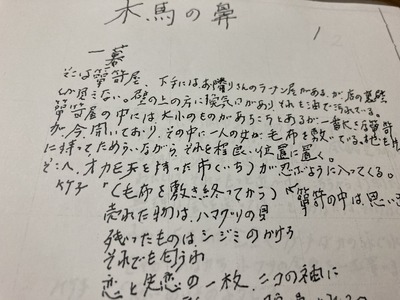 木馬の鼻
1
一幕
そこは箪笥屋、下手にはお隣りさんのラーメン屋があるが店の裏壁
しか見えない。壁の上の方に換気口があり、それも油で汚れている。
箪笥屋の中には大小のものがあちこちとあるが一番大きな箪笥
が今開いており、その中に一人の女が毛布を敷いている。枕を
に持ってためらいながらそれを程良い位置に置く。
そこへ、オカモチを持った市(いち)が忍ぶように入ってくる。
「(毛布を敷き終ってから)箪笥の中は、思い
売れた物は、ハマグリの見
残ったものは、シジミのかけら
それでも匂うわ
恋と失恋の一枚、二つの袖に